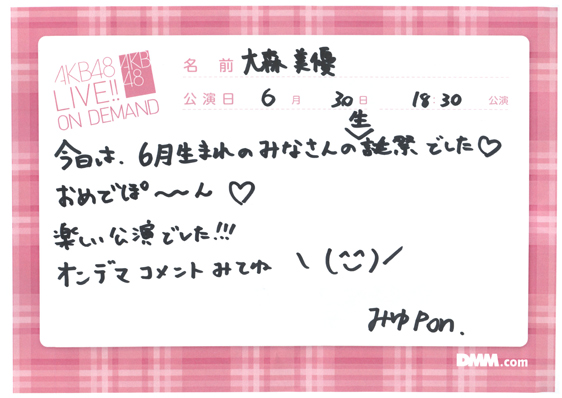 AKB48
LIVE!!
ON DEMAND
AKB
48
名 前 大森美優
公演日 6月 30日 18:30 公演
生
今日は、6月生まれのみなさんの誕祭でした♡
おめでぽ〜〜ん ♡
楽しい公演でした!!!
オンデマ コメント みてね \(^^)/
みゆPon.
DMM.com